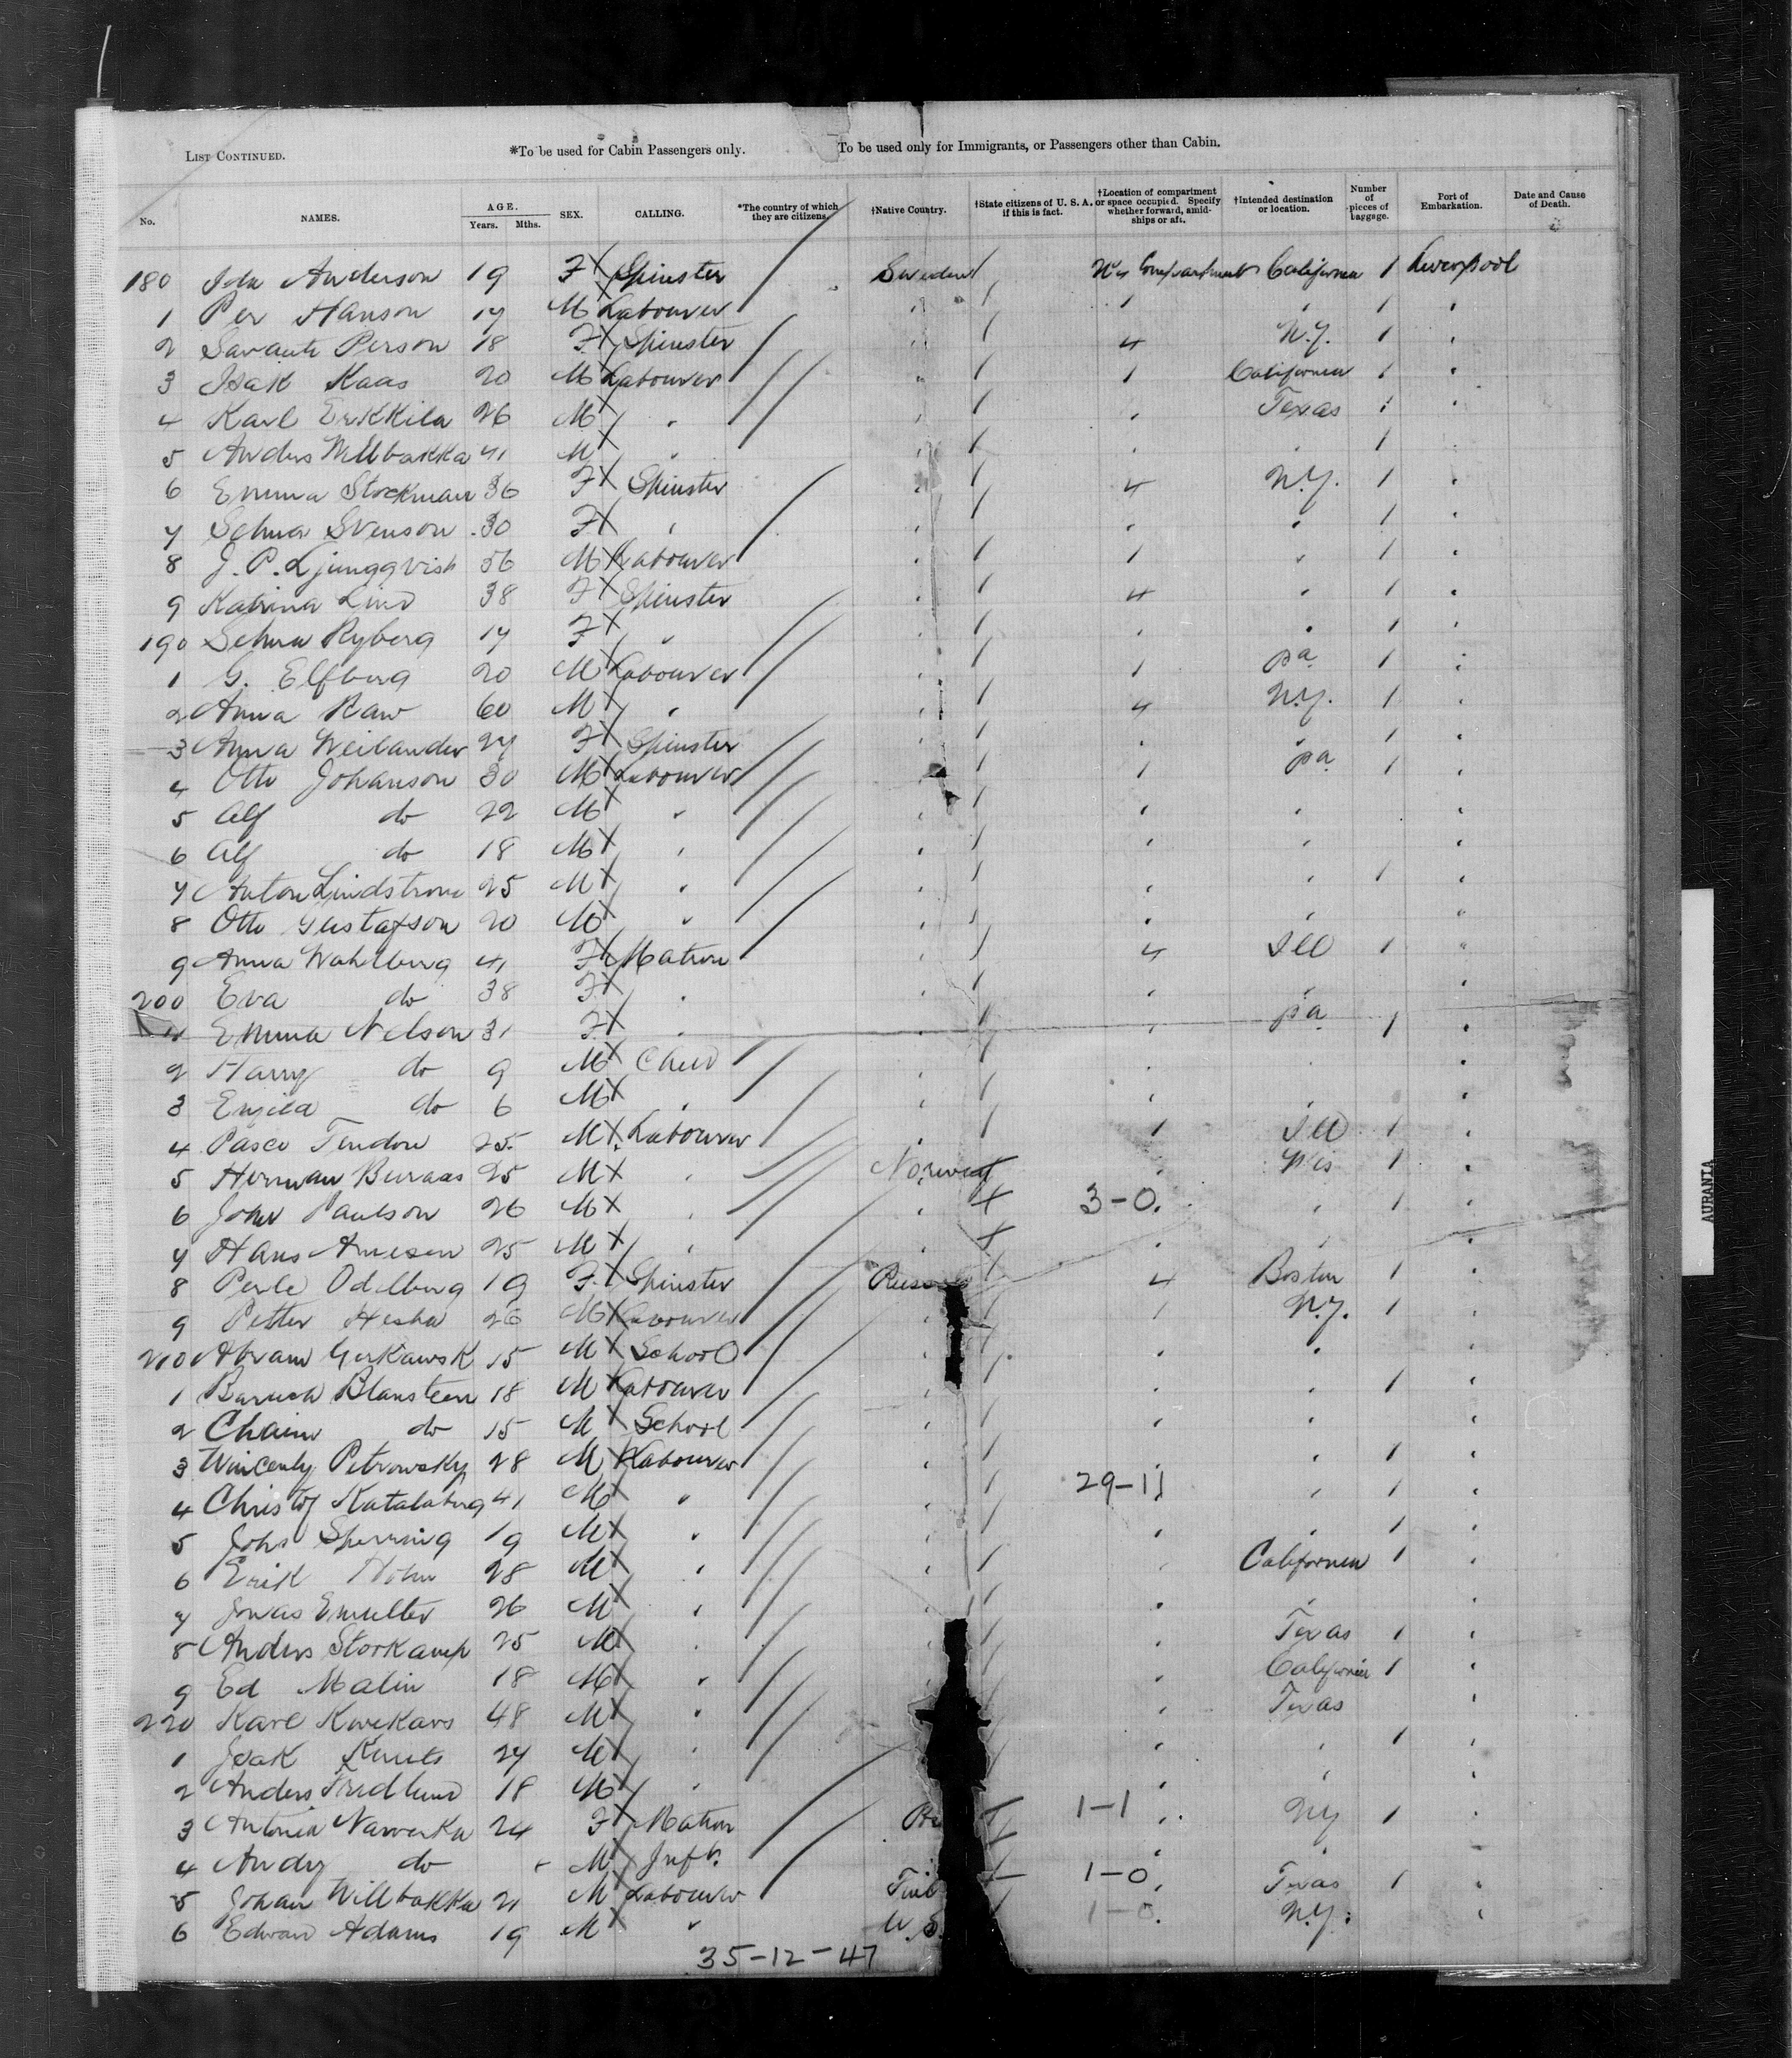 LIST CONTINUED. *To be used for Cabin Passengers only. To be used only for Immigrants, or Passengers other than Cabin.
No. NAMES. AGE. Years. Mths. SEX. CALLING. *The country of which they are citizens. †Native Country. †State citizens of U. S. A. if this is fact. †Location of compartment or space occupied. Specify whether forward, amidships or aft. †Intended destination or location. Number of pieces of baggage. Port of Embarkation. Date and Cause of Death.
180 Ida Anderson 19 F Spinster Sweden No 1 Compartment California 1 Liverpool
1 Per Hanson 17 M Labourer 1 1
2 Person 18 F Spinster 4 N.Y. 1
3 Isak Kaas 20 M Labourer 1 California 1
4 Karl Erikkila 26 M Texas
5 Anders Willbakka 41 M 1
6 Emma Stockman 36 F Spinster 4 N.Y. 1
7 Selma Svenson 30 F 1
8 J. P. Ljunggvist 56 M Labourer 1 1
9 Katrina Lind 38 F Spinster 4 1
190 Selma Ryberg 17 F 1
1 G. Elfberg 20 M Labourer 1 Pa 1
2 Anna Raw 60 M 4 N.Y. 1
3 Anna Weilander 27 F Spinster 1
4 Otto Johanson 30 M Labourer 1 Pa 1
5 Alf do 22 M
6 Alf do 18 M
7 Anton Lindstrom 25 M 1
8 Otto Gustafson 20 M
9 Anna Wahlberg 41 F Matron 4 Ill 1
200 Eva do 38 F
1 Emma Nelson 31 F Pa 1
2 Harry do 9 M Child
3 do 6 M
4 Pasco Tendon 25 M Labourer 1 Ill 1
5 Herman Buraas 25 M Norway Wis 1
6 John Paulson 26 M 3-0. 1
7 Hans Arnesen 25 M
8 Perle Odelburg 19 F Spinster Russia 4 Boston 1
9 Petter Hesha 26 M Labourer 1 N.Y. 1
210 Abram Gerkawsk 15 M School
1 Baruch Blanstein 18 M Labourer 1
2 Chaim do 15 M School
3 Wincenty Petrowsky 28 M Labourer 1
4 Christof Kataloburg 41 M 29-11 1
5 John Sperring 19 M 1
6 Erik Holm 28 M California 1
7 Jonas Emulter 26 M
8 Anders Storkamp 25 M Texas 1
9 Ed Malin 18 M California 1
220 Karl Kwekars 48 M Texas
1 Isak Knuts 27 M 1
2 Anders Fredlund 18 M
3 Antonia Nawerka 24 F Matron 1-1 NY 1
4 Andy do M Inft.
5 Johan Willbakka 21 M Labourer 1-0 Texas 1
6 Edward Adams 19 M U.S. 1-0. N.Y.
35-12-47
AURANIA